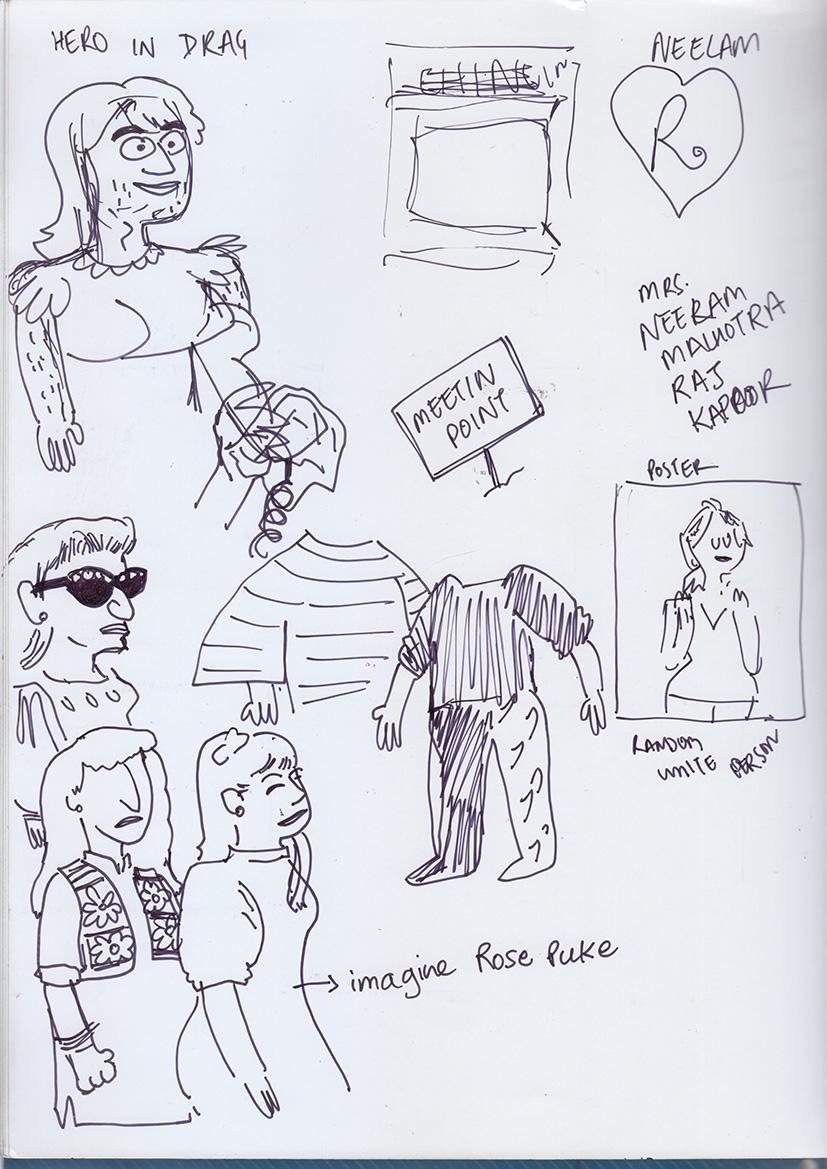 HERO IN DRAG
NEELAM
R
MRS.
NEERAM
MALHOTRA
RAJ
KAPOOR
MEETIN
POINT
POSTER
RANDOM
WHITE PERSON
imagine Rose Puke